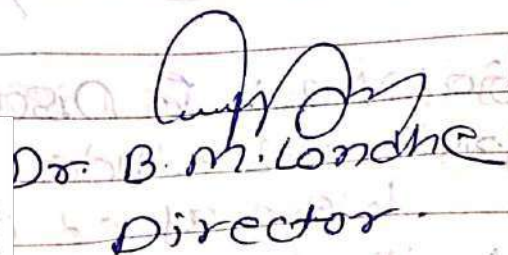 Dr. B. M. Londhe
Director.